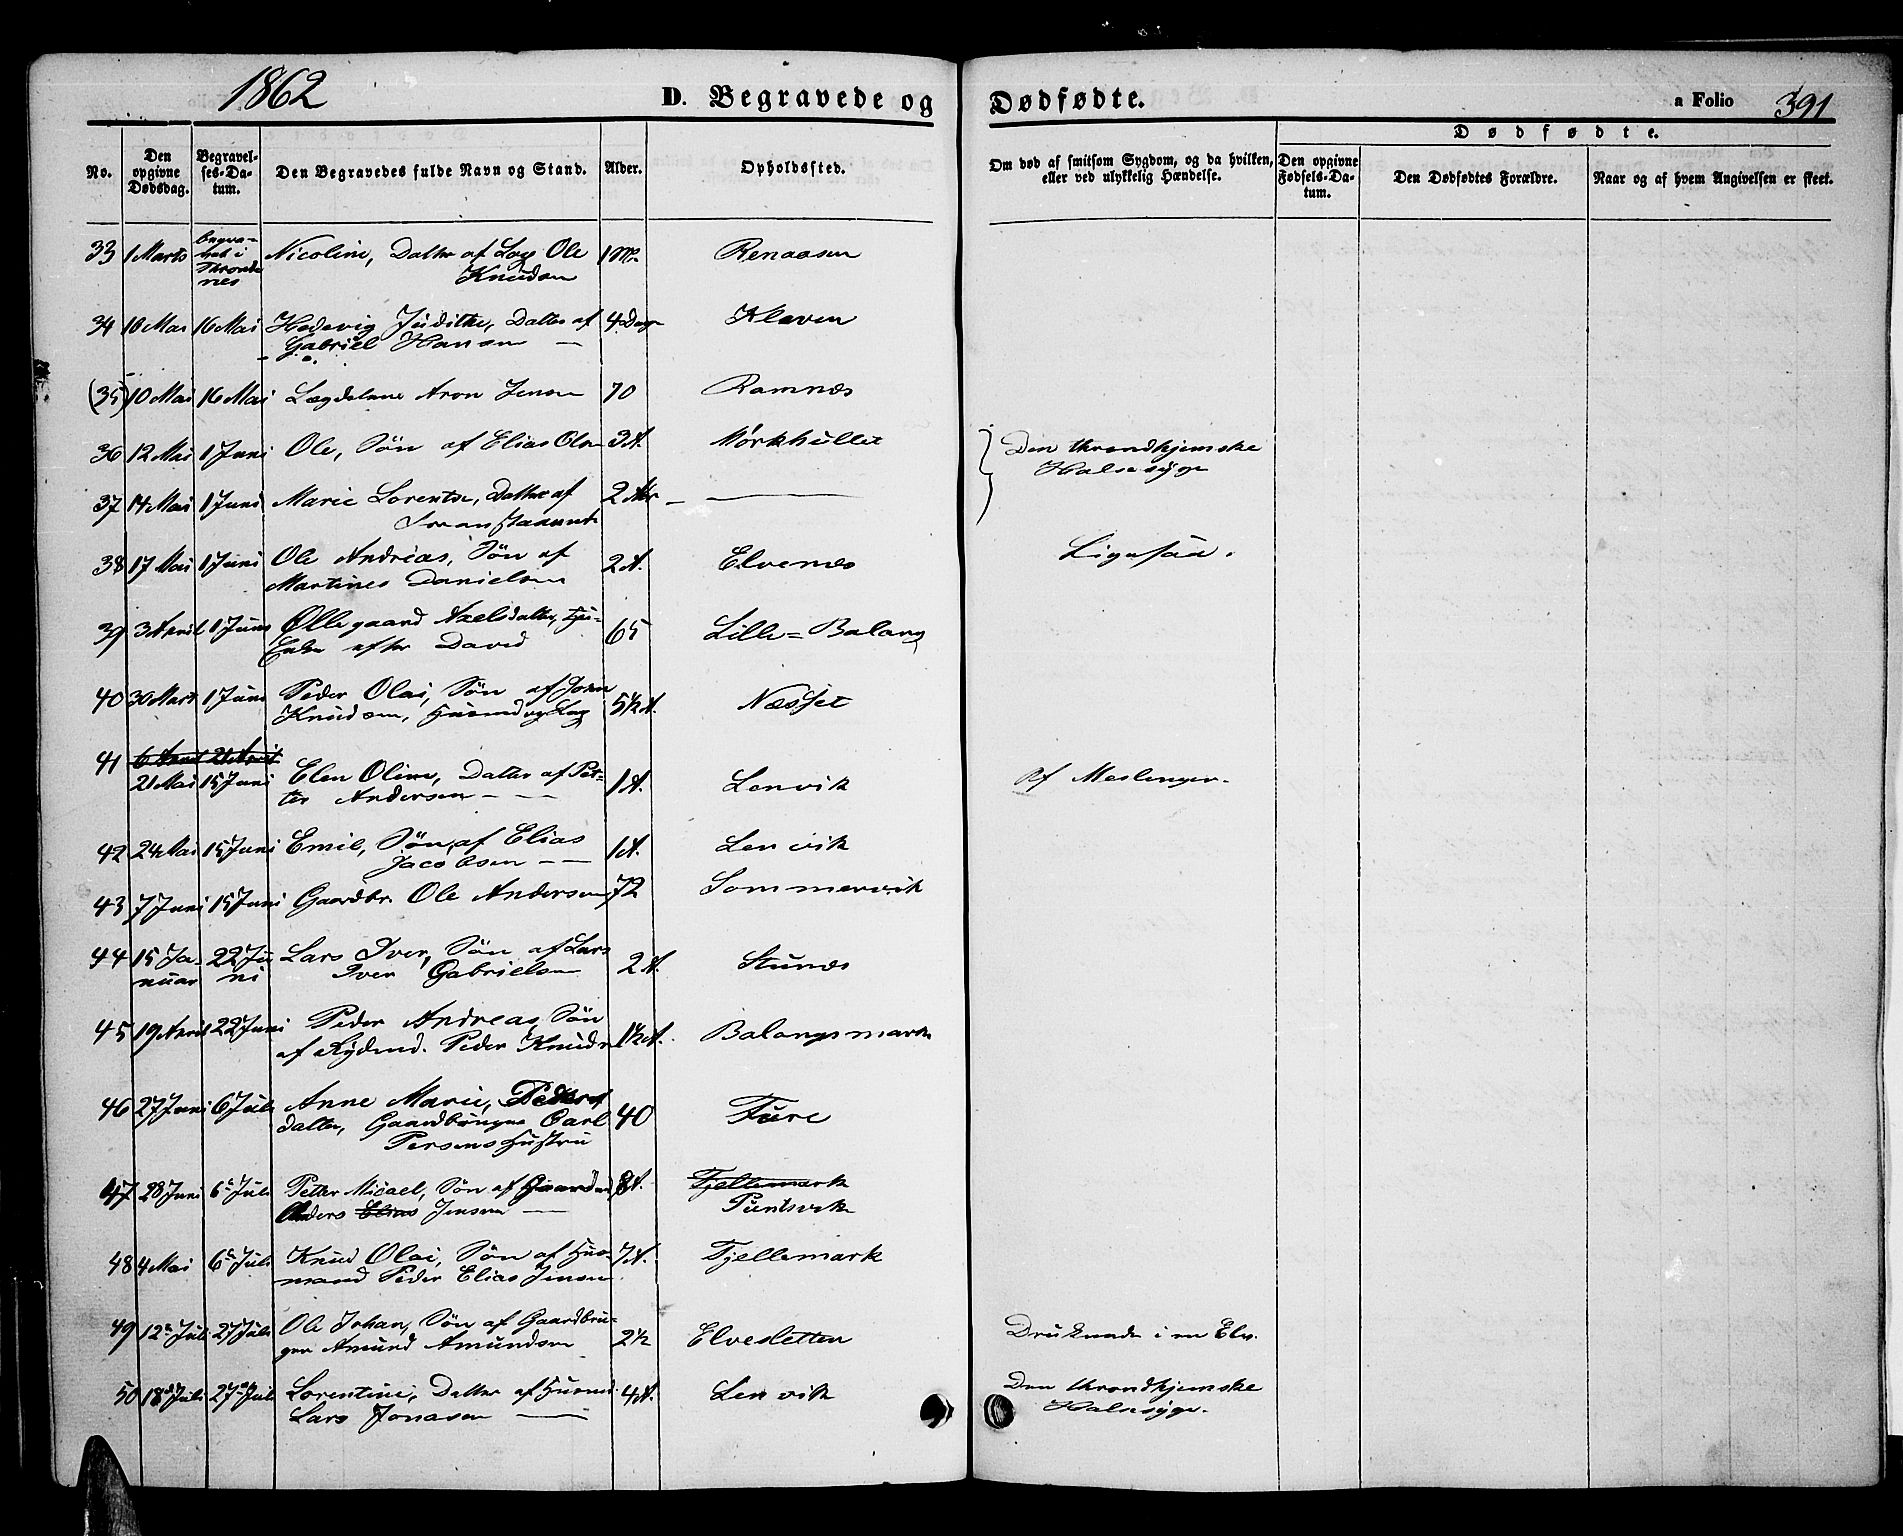 1862
D. Begravede og Dødfødte.
a Folio 391
Dødfødte.
No.
Den opgivne Dødsdag.
Begravelses-Datum.
Den Begravedes fulde Navn og Stand.
Alder.
Opholdssted.
Om død af smitsom Sygdom, og da hvilken, eller ved ulykkelig Hændelse.
Den opgivne Fødsels-Datum.
Den Dødfødtes Forældre.
Naar og af hvem Angivelsen er skeet.
33 1 Marts begravet i Throndenes Nicoline, Datter af Log Ole 1 M. Renaasen
Knudsen
34 10 Mai 16 Mai Hedevig Judithe, Datter af 4 Dage Kleven
Gabriel Hansen —
(35) 10 Mai 16 Mai Lægdslem Aron Jensen 70 Ramnæs
36 12 Mai 1 Juni Ole, Søn af Elias Olsen 3 A. Mørkhullet Den throndhjemske
Halsesyge
37 14 Mai 1 Juni Marie Lorentse, Datter af 2 Aar — ———
38 17 Mai 1 Juni Ole Andreas, Søn af 2 A. Elvenæs Ligesaa.
Martines Danielsen
39 3 April 1 Juni Ollegaard Axelsdatter, 65 Lille=Balang
Enke efter David
40 30 Marts 1 Juni Peder Olai, Søn af John 5½ A. Næsset
Knudsen, Husmd og Log
41 6 April 21 April
21 Mai 15 Juni Elen Oline, Datter af Pet- 1 A. Lenvik Af Meslinger.
ter Andersen — —
42 24 Mai 15 Juni Emil, Søn af Elias 1 A. Lenvik
Jacobsen — —
43 7 Juni 15 Juni Gaardbr. Ole Andersen 72 Sommervik
44 15 Ja- 22 Ju- Lars Iver, Søn af Lars 2 A. Stunæs
nuar ni Iver Gabrielsen
45 19 April 22 Juni Peder Andreas, Søn 1½ A. Balangsmark
af Rydnd. Peder Knuds
46 27 Juni 6 Juli Anne Marie, Peders 40 Fure
datter, Gaardbruger Carl
Persens Hustru
47 28 Juni 6te Juli Petter Micael, Søn af Gaardmd 8 A. Fjellemark
Anders Elias Jensen — Puntsvik
48 4 Mai 6te Juli Knud Olai, Søn af Hus- 7 A. Fjellemark
mand Peder Elias Jensen
49 12te Juli 27 Juli Ole Johan, Søn af Gaardbru- 2½ Elvesletten Druknede i en Elv.
ger Amund Amundsen
50 18de Juli 27de Juli Lorentine, Datter af Husmd. 4 A. Lenvik Den throndhjemske
Lars Jonasen — Halsesyge.